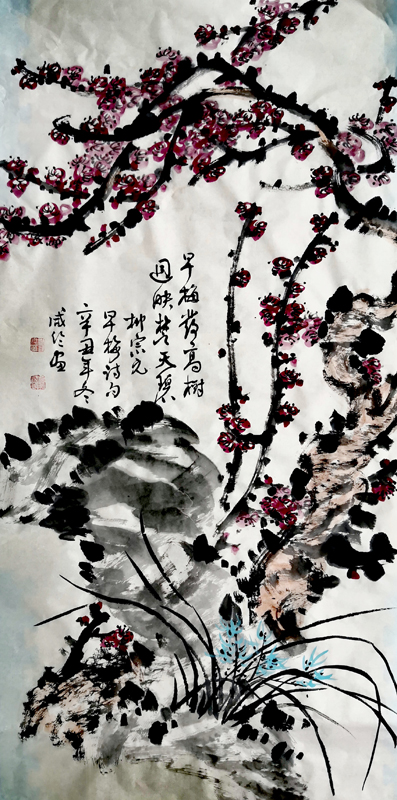 早梅发高树
迥映楚天碧
柳宗元
早梅诗句
辛丑年冬